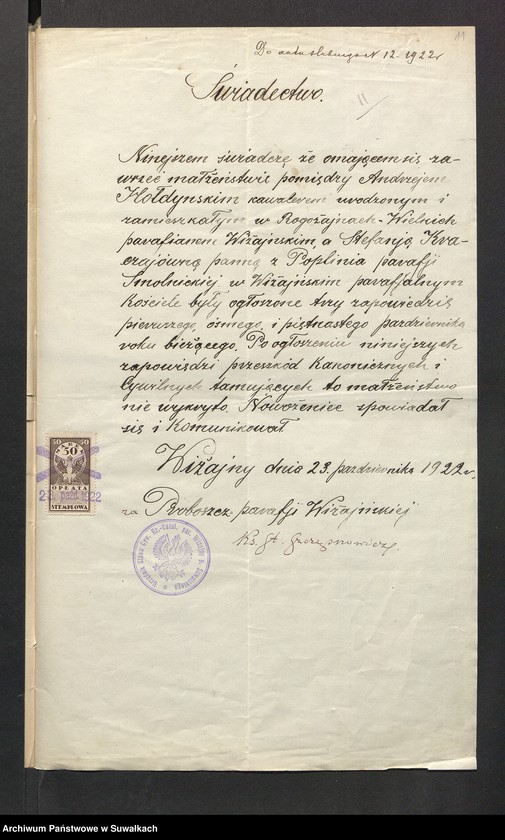 11
Do aktu ślubnego N 12 - 1922 r
Świadectwo.
11
Ninejszem świadczę że omającem się za-
wrzeć małżeństwie pomiędzy Andrzejem
Hołdynskim kawalerem urodzonym i
zamieszkałym w Rogożajnach-Wielkich
parafianem Wiżajnskim, a Stefanją Kra-
czajówną panną z Poplinia parafji
Smolnickiej w Wiżajnskim parafjalnym
Kosciele były ogłoszone trzy zapowiedzie
pierwszego, ósmego, i piętnastego pazdziernika
roku bieżącego. Po ogłoszeniu niniejszych
zapowiedzi przeszkód Kanonicznych i
Cywilnych tamujących to małżeństwo
nie wykryto. Nowożeniec spowiadał
się i Komunikował
Wiżajny dnia 23. pazdziernika 1922 r.
50 50
50
OPŁATA
STEMPLOWA
paźd. 1922
za Proboszcz parafji Wiżajńskiej
Ks. St.
Archiwum Państwowe w Suwałkach